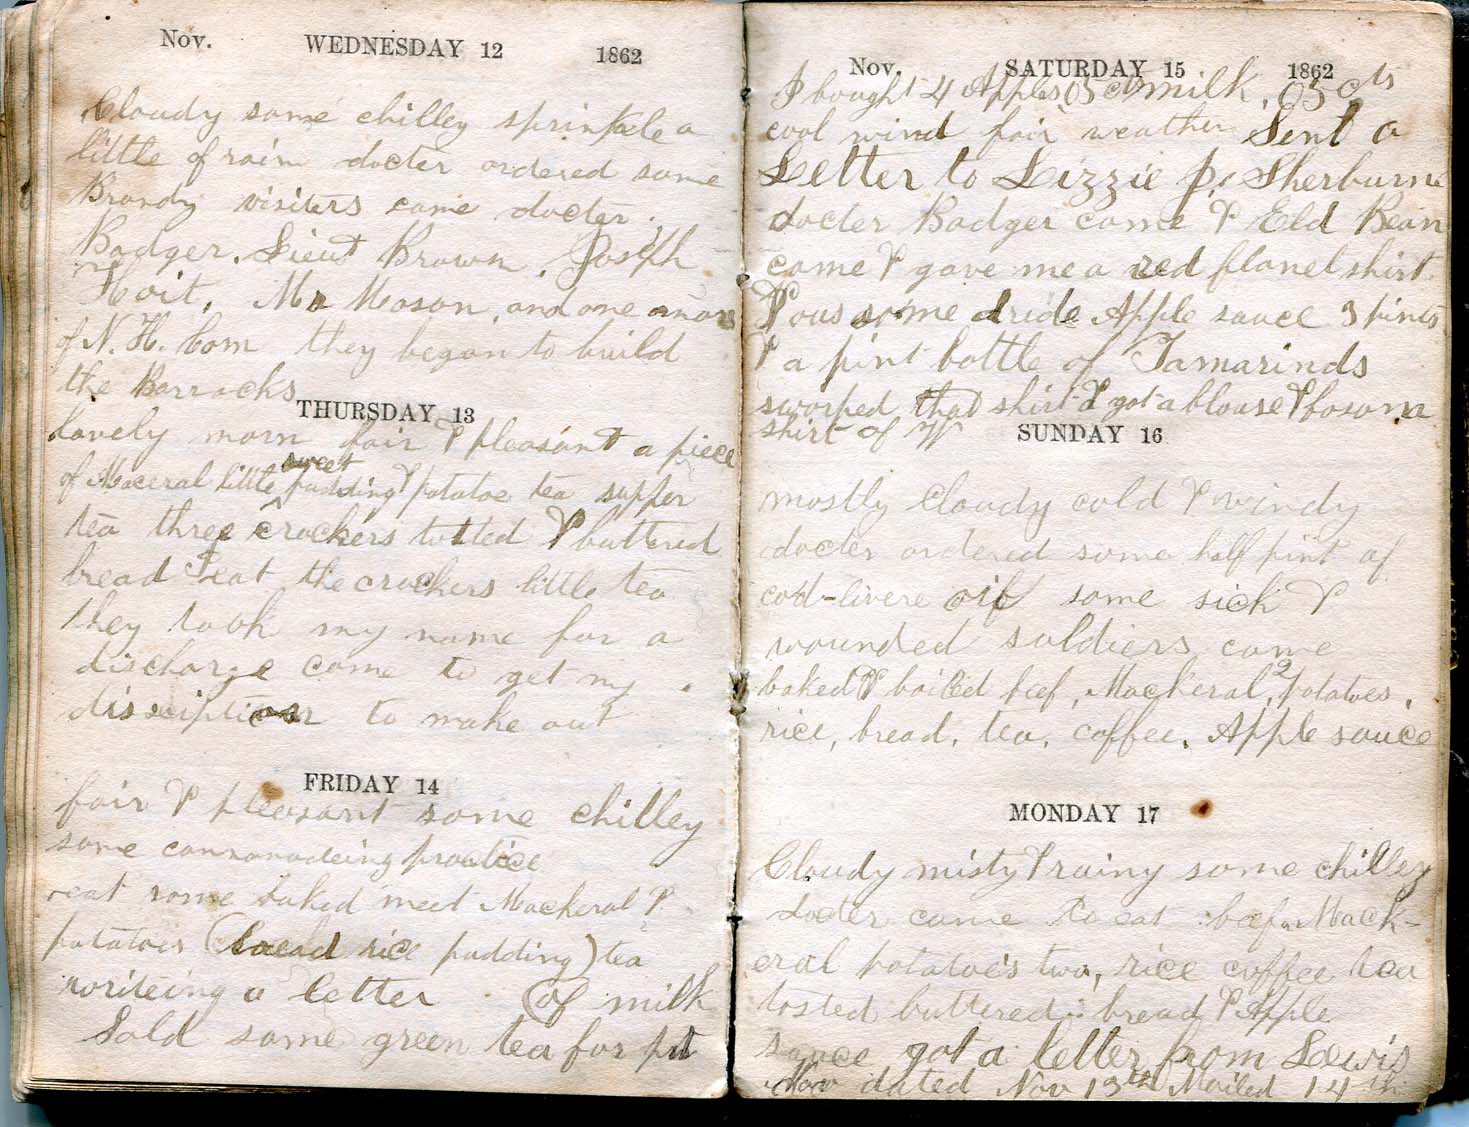 Nov. WEDNESDAY 12 1862
Cloudy some chilley sprinkle a
little of rain docter ordered some
Brandy visiters came docter
Badger. Lieut Brown. Joseph
Hoit, Mr Mason, and one man
of N. H. Com they began to build
the Barracks
THURSDAY 13
lovely morn fair & pleasant a piece
sweet
of Maceral little pudding & potatoe tea supper
tea three crackers tosted & buttered
bread I eat the crackers little tea
they took my name for a
discharge came to get my
discription to make out
FRIDAY 14
fair & pleasant some chilley
some cannonadeing practice
eat some baked meet Mackeral &
potatoes (bread rice pudding) tea
writeing a letter (of milk
Sold some green tea for pt
Nov. SATURDAY 15 1862
I bought 4 Apples 05 cts milk. 05 cts
cool wind fair weather Sent a
Letter to Lizzie P. Sherburne
docter Badger came & Eld Bean
came & gave me a red flanel shirt
& ous some dride Apple sauce 3 pints
& a pint bottle of Tamarinds
sworped that shirt & got a blouse & bosom
shirt of W
SUNDAY 16
mostly cloudy cold & windy
docter ordered some half pint of
cod-livere oil some sick &
wounded soldiers came
baked & boiled beef, Mackeral, 2 potatoes,
rice, bread, tea, coffee, Apple sauce
MONDAY 17
Cloudy misty & rainy some chilley
docter came to eat beef Mack-
eral potatoe's two, rice coffee tea
tosted buttered bread & Apple
sauce got a letter from Lewis
dated Nov 13th Mailed 14th